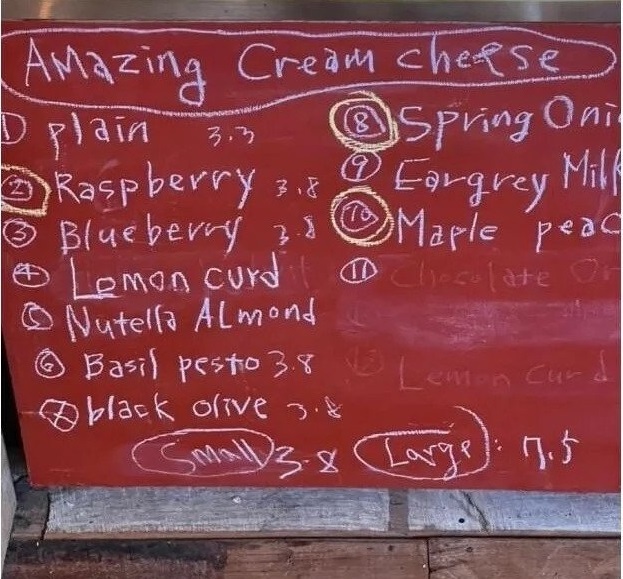 Amazing Cream cheese
① plain 3.3
② Raspberry 3.8
③ Blueberry 3.8
④ Lemon curd
⑤ Nutella ALmond
⑥ Basil pesto 3.8
⑦ black olive 3.8
⑧ Spring Oni
⑨ Eargrey Milk
⑩ Maple peac
⑪ Chocolate Or
⑫ Lemon curd
Small 3.8 Large: 7.5